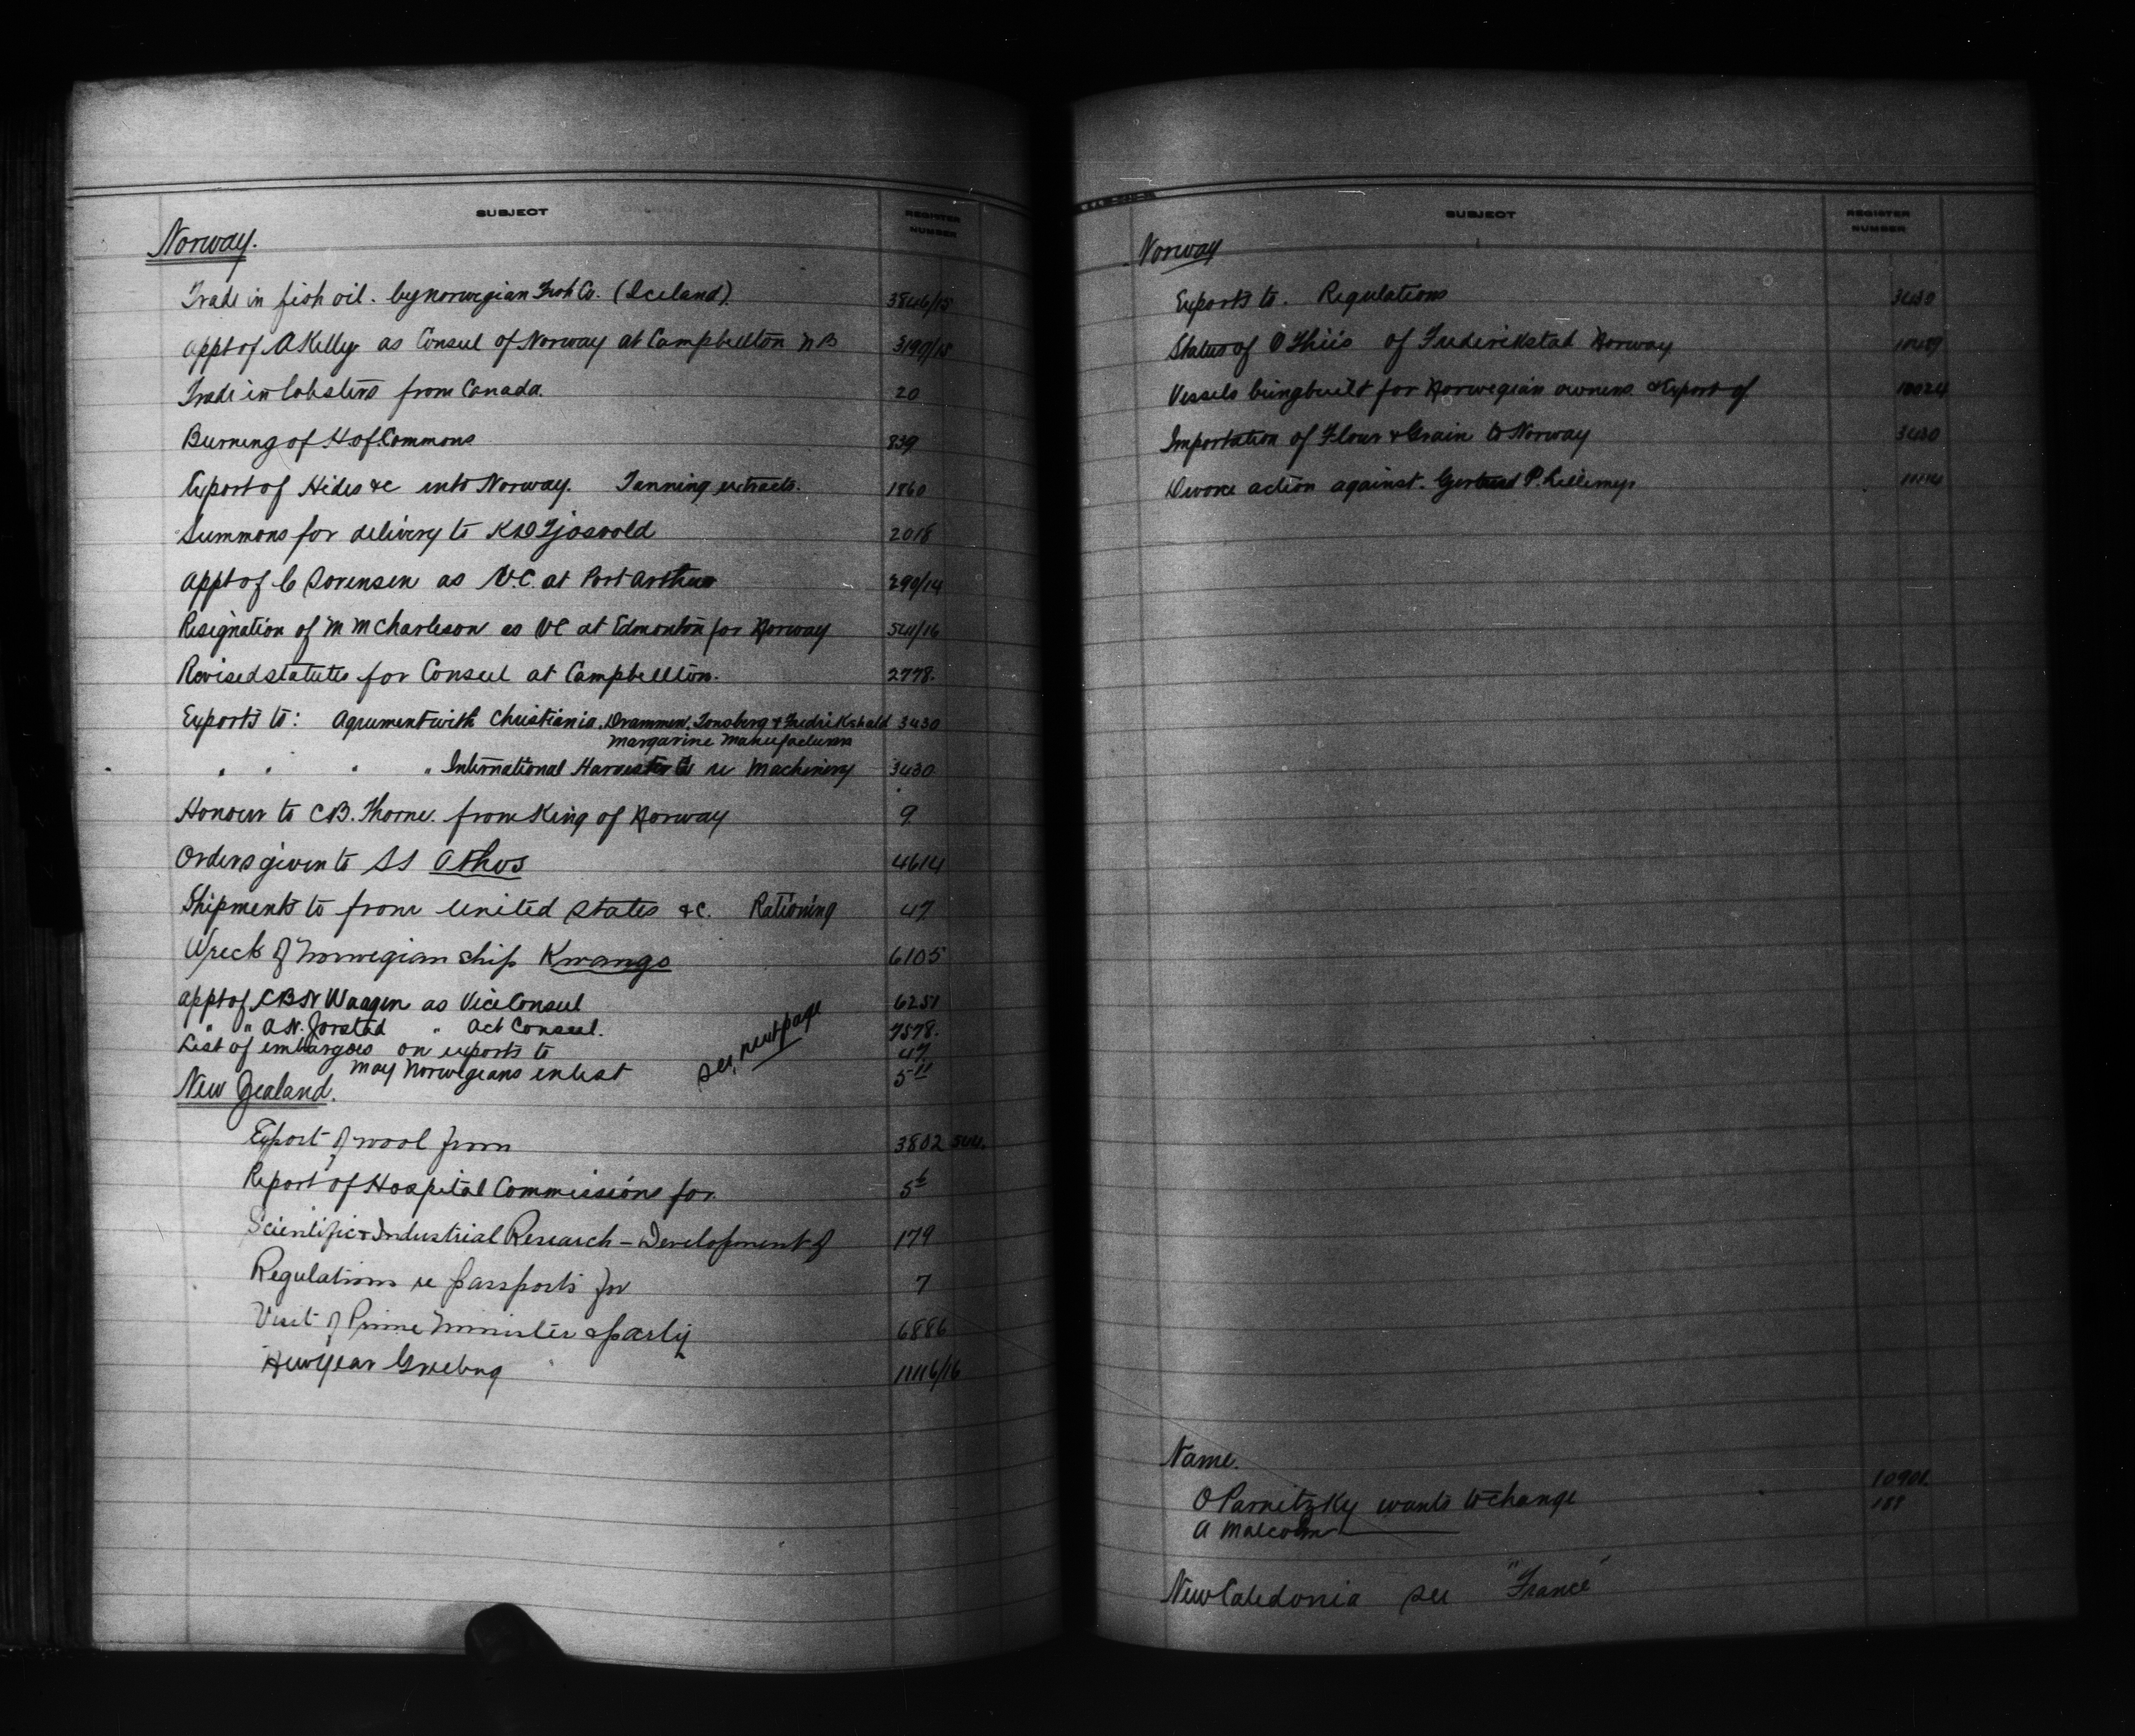 SUBJECT
REGISTER NUMBER
Norway.
Trade in fish oil. by norwegian Fish Co. (Iceland). 3846/15
appt of A Kelly as Consul of Norway at Campbellton NB 3190/15
Trade in lobsters from Canada. 20
Burning of H of Commons 839
Export of Hides &c into Norway. Tanning extracts. 1860
Summons for delivery to K D Tjosvold 2018
appt of C Sorensen as V.C. at Port Arthur 290/14
Resignation of M McCharleson as VC at Edmonton for Norway 541/16
Revised statutes for Consul at Campbellton. 2778.
Exports to: Agreement with Christiania, Drammen, Tonsberg & Fredrikshald 3430
Margarine Manufacturers
" " " " International Harvester Co re Machinery 3430
Honour to C B. Thorne. from King of Norway 9.
Orders given to SS Athos 4614
Shipments to from United States &c. Rationing 47
Wreck of Norwegian ship Kwango 6105
appt of C B N Waagen as Vice Consul 6251
" " A N. Jorstad " Act Consul. 7578.
List of embargoes on exports to 47
May Norwegians enlist 5 11
see next page
New Zealand.
Export of wool from 3802 544.
Report of Hospital Commissions for 5 6
Scientific & Industrial Research – Development of 179
Regulations re passports for 7
Visit of Prime Minister & party 6886
New Year Greeting 11116/16
SUBJECT
REGISTER NUMBER
Norway
Exports to. Regulations 3430
Status of O Thiis of Frederikstad Norway
Vessels being built for Norwegian owners & Export of 10024
Importation of Flour & Grain to Norway 3430
Divorce action against. Gertrud P.
Name.
O Parnitzky wants to change
A Malcolm
New Caledonia see "France"